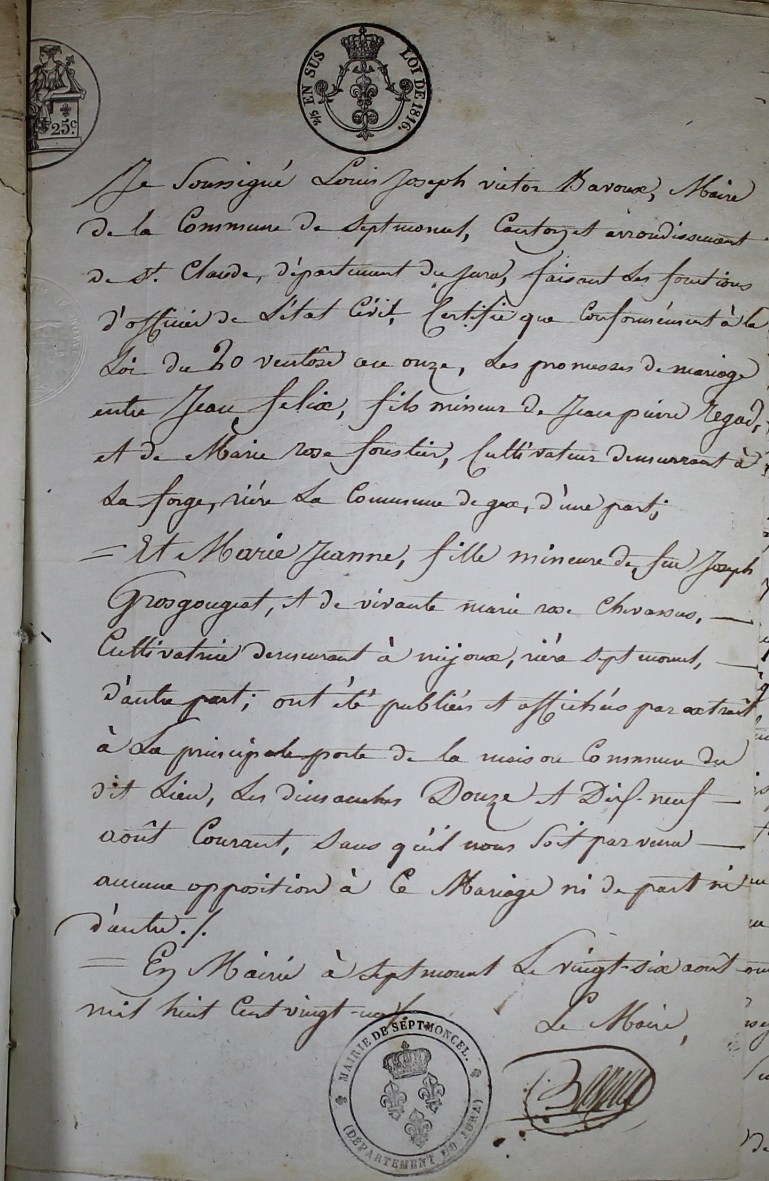 25c
¼ EN SUS LOI DE 1816.
Je Soussigné Louis Joseph victor Bavoux, Maire
de la Commune de Septmoncel, Canton et arrondissement
de St. Claude, département du Jura, faisant les fonctions
d'officier de L'état Civil, Certifie que Conformément à la
Loi du 20 ventôse an onze, les promesses de mariage
entre Jean felix, fils mineur de Jean pierre Regad,
et de Marie rose forestier, Cultivateur demeurant à
La forge, rière La Commune de gex, d'une part;
= Et Marie Jeanne, fille mineure de feu Joseph
Grosgougeat, et de vivante marie rose Chevassus, —
Cultivatrice demeurant à mijoux, rière septmoncel, —
d'autre part; ont été publiées et affichées par extrait
à La principale porte de la maison Commune du
dit Lieu, les dimanches Douze et Dix-neuf —
août Courant, Sans qu'il nous Soit parvenu —
aucune opposition à Ce Mariage ni de part ni
d'autre ./.
= En Mairie à septmoncel Le vingt-six août
mil huit Cent vingt-
Le Maire,
MAIRIE DE SEPTMONCEL.
(DÉPARTEMENT DU JURA)